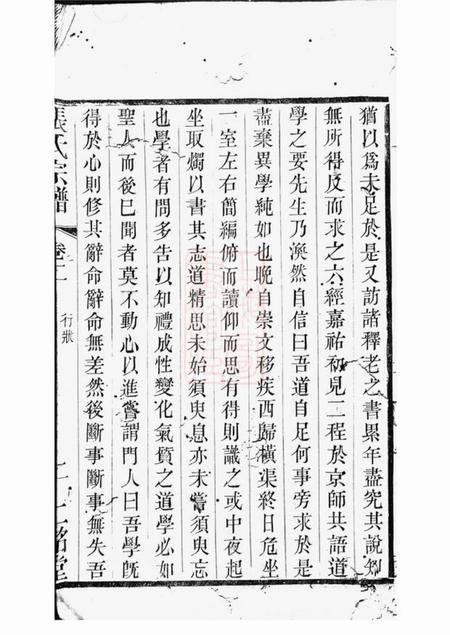 猶以爲未足於是又訪諸釋老之書累年盡究其說知
無所得反而求之六經嘉祐初見二程於京師共語道
學之要先生乃渙然自信曰吾道自足何事旁求於是
盡棄異學純如也晚自崇文移疾西歸橫渠終日危坐
一室左右簡編俯而讀仰而思有得則識之或中夜起
坐取燭以書其志道精思未始須臾息亦未嘗須臾忘
也學者有問多告以知禮成性變化氣質之道學必如
聖人而後已聞者莫不動心以進嘗謂門人曰吾學旣
得於心則修其辭命辭命無差然後斷事斷事無失吾
張氏宗譜
卷
行狀
銘堂